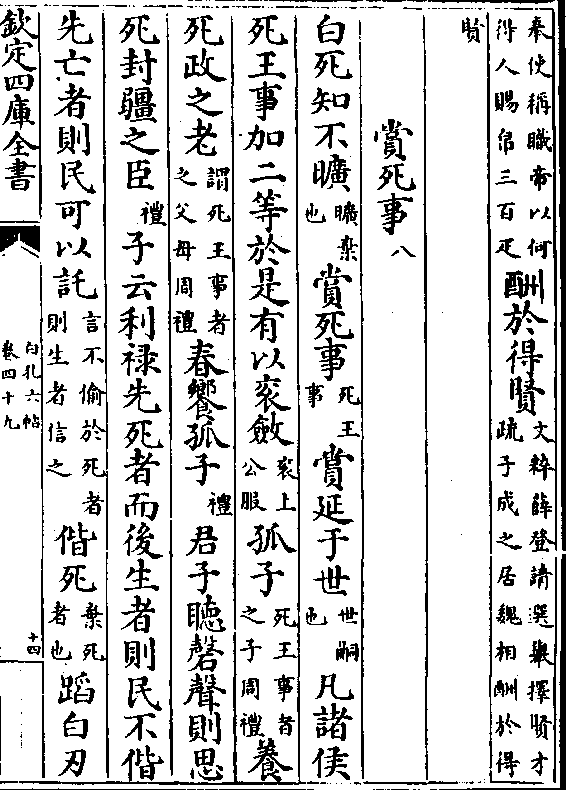 奉使稱職帝以何得人賜帛三百疋酬於得賢文粹薛登請選舉擇賢才疏子成之居魏相酬於得
賢
賞死事八
白死知不曠曠棄也賞死事死王事賞延于世世嗣也凡諸侯
死王事加二等於是有以衮斂衮上公服孤子死王事者之子周禮養
死政之老謂死王事者之父母周禮春饗孤子禮君子聽磬聲則思
死封疆之臣禮子云利禄先死者而後生者則民不偕
先亡者則民可以託言不偷於死者則生者信之偕死棄死者也蹈白刃
欽定四庫全書
白孔六帖
卷四十九
十四